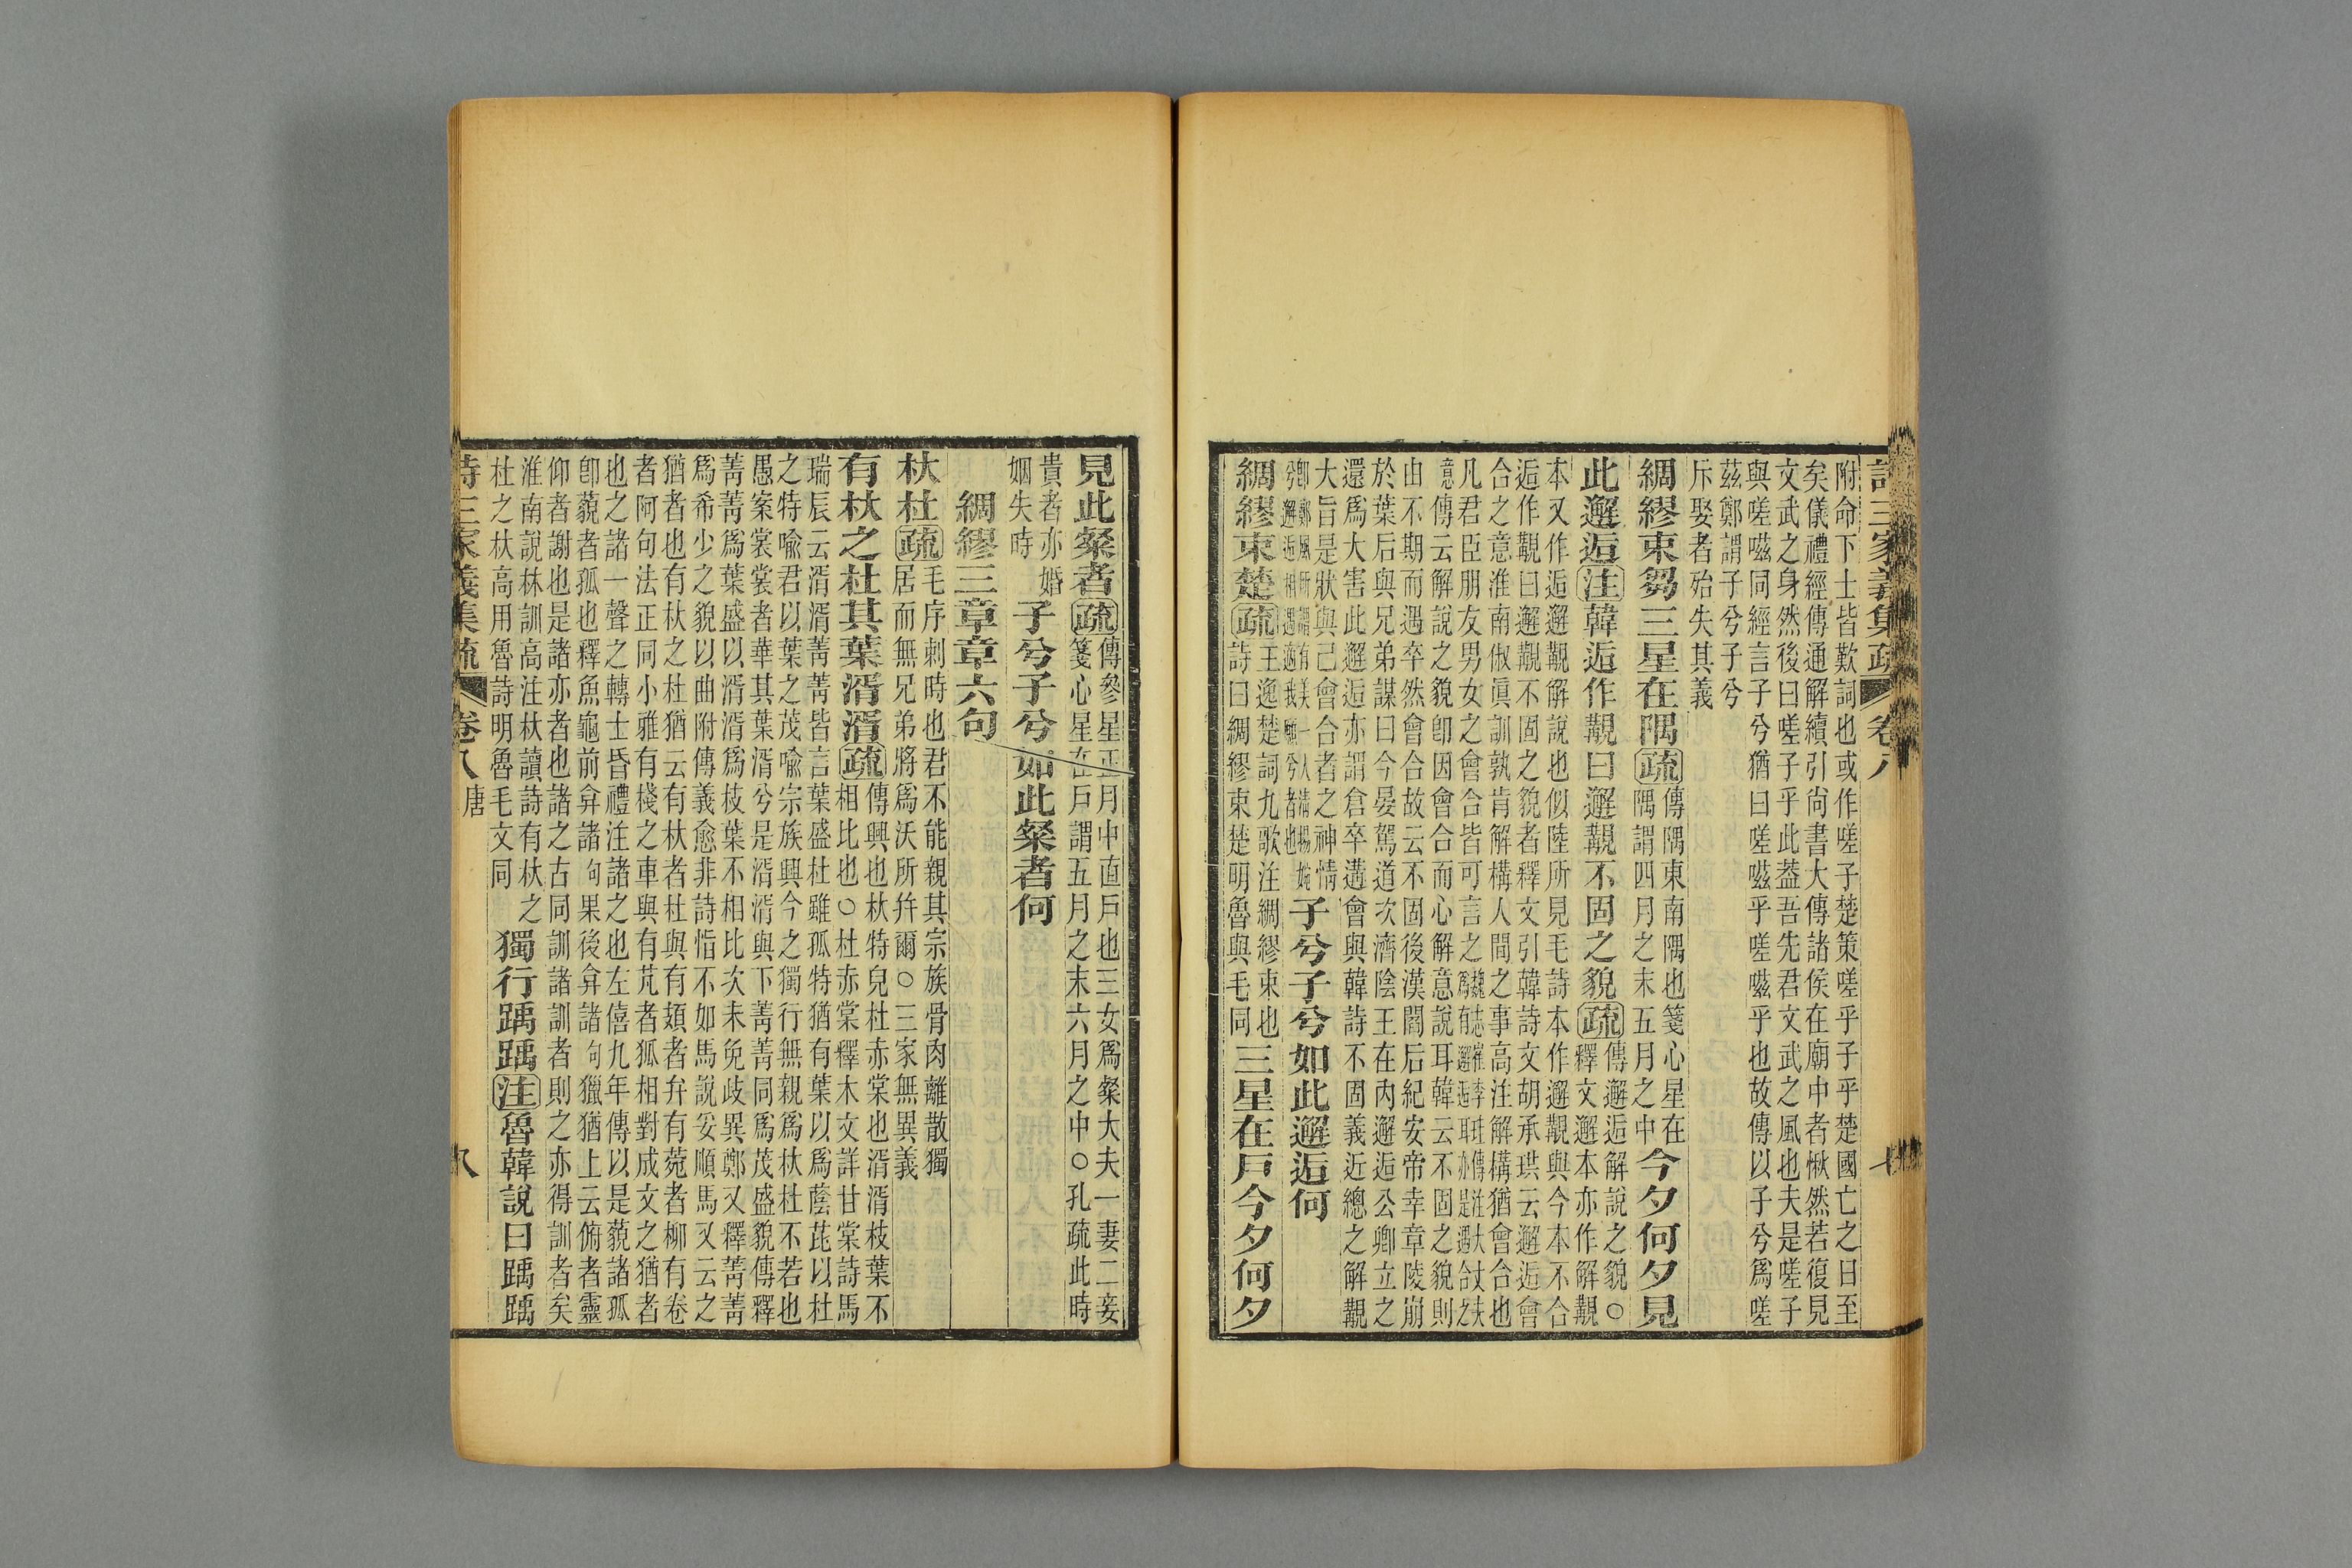 詩三家義集疏 卷八 七
附命下士皆歎詞也或作嗟子楚策嗟乎子乎楚國亡之日至
矣儀禮經傳通解續引尚書大傳諸侯在廟中者愀然若復見
文武之身然後曰嗟子乎此蓋吾先君文武之風也夫是嗟子
與嗟嗞同經言子兮猶曰嗟嗞乎嗟嗞乎也故傳以子兮爲嗟
茲鄭謂子兮子兮
斥娶者殆失其義
綢繆束芻三星在隅疏傳隅東南隅也箋心星在
隅謂四月之末五月之中今夕何夕見
此邂逅注韓逅作覯曰邂覯不固之貌疏傳邂逅解說之貌○
釋文邂本亦作解覯
本又作逅邂覯解說也似陸所見毛詩本作邂覯與今本不合
逅作覯曰邂覯不固之貌者釋文引韓詩文胡承珙云邂逅會
合之意淮南俶眞訓孰肯解構人間之事高注解構猶會合也
凡君臣朋友男女之會合皆可言之魏志崔季珪傳注大丈夫
爲有邂逅耳亦是遇合之
意傳云解說之貌卽因會合而心解意說耳韓云不固之貌則
由不期而遇卒然會合故云不固後漢閻后紀安帝幸章陵崩
於葉后與兄弟謀曰今晏駕道次濟陰王在內邂逅公卿立之
還爲大害此邂逅亦謂倉卒遘會與韓詩不固義近總之解覯
大旨是狀與己會合者之神情
卽鄭風所謂有美一人淸揚婉
兮邂逅相遇適我願兮者也子兮子兮如此邂逅何
綢繆束楚疏王逸楚詞九歌注綢繆束也
詩曰綢繆束楚明魯與毛同三星在戶今夕何夕
見此粲者疏傳參星正月中直戶也三女爲粲大夫一妻二妾
箋心星在戶謂五月之末六月之中○孔疏此時
貴者亦婚
姻失時子兮子兮如此粲者何
綢繆三章章六句
杕杜疏毛序刺時也君不能親其宗族骨肉離散獨
居而無兄弟將爲沃所幷爾○三家無異義
有杕之杜其葉湑湑疏傳興也杕特皃杜赤棠也湑湑枝葉不
相比也○杜赤棠釋木文詳甘棠詩馬
瑞辰云湑湑菁菁皆言葉盛杜雖孤特猶有葉以爲蔭芘以杜
之特喻君以葉之茂喻宗族興今之獨行無親爲杕杜不若也
愚案裳裳者華其葉湑兮是湑湑與下菁菁同爲茂盛貌傳釋
菁菁爲葉盛以湑湑爲枝葉不相比次未免歧異鄭又釋菁菁
爲希少之貌以曲附傳義愈非詩恉不如馬說妥順馬又云之
猶者也有杕之杜猶云有杕者杜與有頍者弁有菀者柳有卷
者阿句法正同小雅有棧之車與有芃者狐相對成文之猶者
也之諸一聲之轉士昏禮注諸之也左僖九年傳以是藐諸孤
卽藐者孤也釋魚龜前弇諸句果後弇諸句獵猶上云俯者靈
仰者謝也是諸亦者也諸之古同訓諸訓者則之亦得訓者矣
淮南說林訓高注杕讀詩有杕之
杜之杕高用魯詩明魯毛文同獨行踽踽注魯韓說曰踽踽
詩三家義集疏 卷八 唐 八